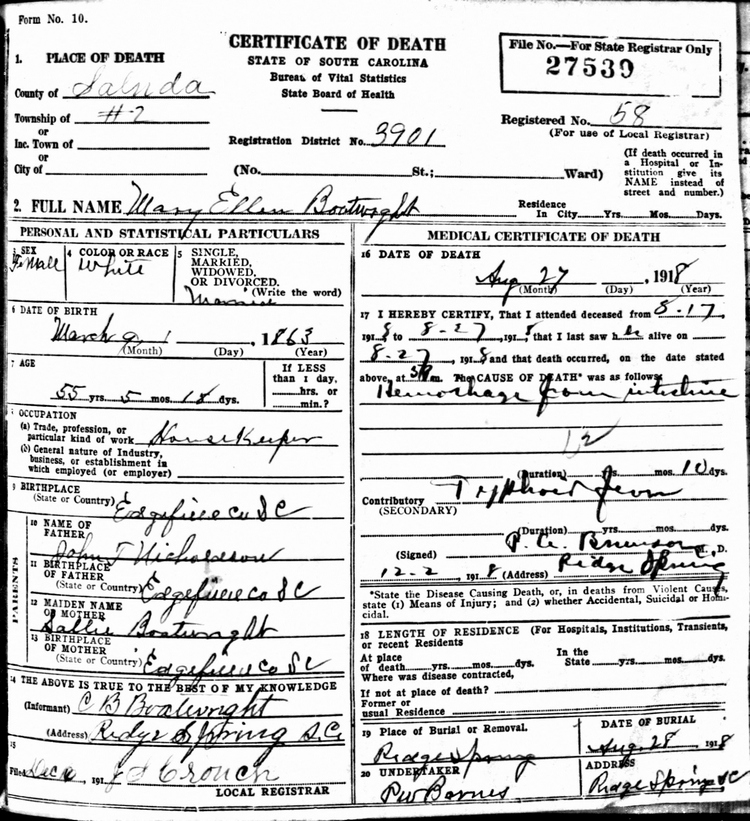 Form No. 10.
CERTIFICATE OF DEATH
STATE OF SOUTH CAROLINA
Bureau of Vital Statistics
State Board of Health
File No.—For State Registrar Only
27539
1. PLACE OF DEATH
County of Saluda
Township of #2
or
Inc. Town of
or
City of
Registration District No. 3901
Registered No. 58
(For use of Local Registrar)
(No. St.; Ward)
(If death occurred in
a Hospital or In-
stitution give its
NAME instead of
street and number.)
2. FULL NAME Mary Ellen Boatwright
Residence
In City Yrs. Mos. Days.
PERSONAL AND STATISTICAL PARTICULARS
3 SEX
4 COLOR OR RACE
White
5 SINGLE,
MARRIED,
WIDOWED,
OR DIVORCED.
(Write the word)
Married
6 DATE OF BIRTH
March 9, 1863
(Month) (Day) (Year)
7 AGE
55 yrs. 5 mos. 18 dys.
If LESS
than 1 day,
hrs. or
min.?
8 OCCUPATION
(a) Trade, profession, or
particular kind of work House Keeper
(b) General nature of Industry,
business, or establishment in
which employed (or employer)
9 BIRTHPLACE
(State or Country) Edgefield Co S C
PARENTS
10 NAME OF
FATHER
John T Nicholdson
11 BIRTHPLACE
OF FATHER
(State or Country) Edgefield Co S C
12 MAIDEN NAME
OF MOTHER
Sallie Boatwright
13 BIRTHPLACE
OF MOTHER
(State or Country) Edgefield Co S C
14 THE ABOVE IS TRUE TO THE BEST OF MY KNOWLEDGE
(Informant) C B Boatwright
(Address) Ridge Spring S.C.
15
Filed Dec 191 J S Crouch
LOCAL REGISTRAR
MEDICAL CERTIFICATE OF DEATH
16 DATE OF DEATH
Aug 27, 1918
(Month) (Day) (Year)
17 I HEREBY CERTIFY, That I attended deceased from 8-17,
1918 to 8-27, 1918, that I last saw h alive on
8-27, 1918 and that death occurred, on the date stated
above, at m. The CAUSE OF DEATH* was as follows:
Hemorrhage from intestine
12
(Duration) yrs. mos. 10 dys.
Contributory Typhoid fever
(SECONDARY)
(Duration) yrs. mos. dys.
(Signed) Brunson M. D.
12-2, 1918 (Address) Ridge Spring
*State the Disease Causing Death, or, in deaths from Violent Causes,
state (1) Means of Injury; and (2) whether Accidental, Suicidal or Homi-
cidal.
18 LENGTH OF RESIDENCE (For Hospitals, Institutions, Transients,
or recent Residents
At place
of death yrs. mos. dys.
In the
State yrs. mos. dys.
Where was disease contracted,
If not at place of death?
Former or
usual Residence
19 Place of Burial or Removal.
Ridge Spring
DATE OF BURIAL
Aug 28, 1918
20 UNDERTAKER
PW Barnes
ADDRESS
Ridge Spring SC